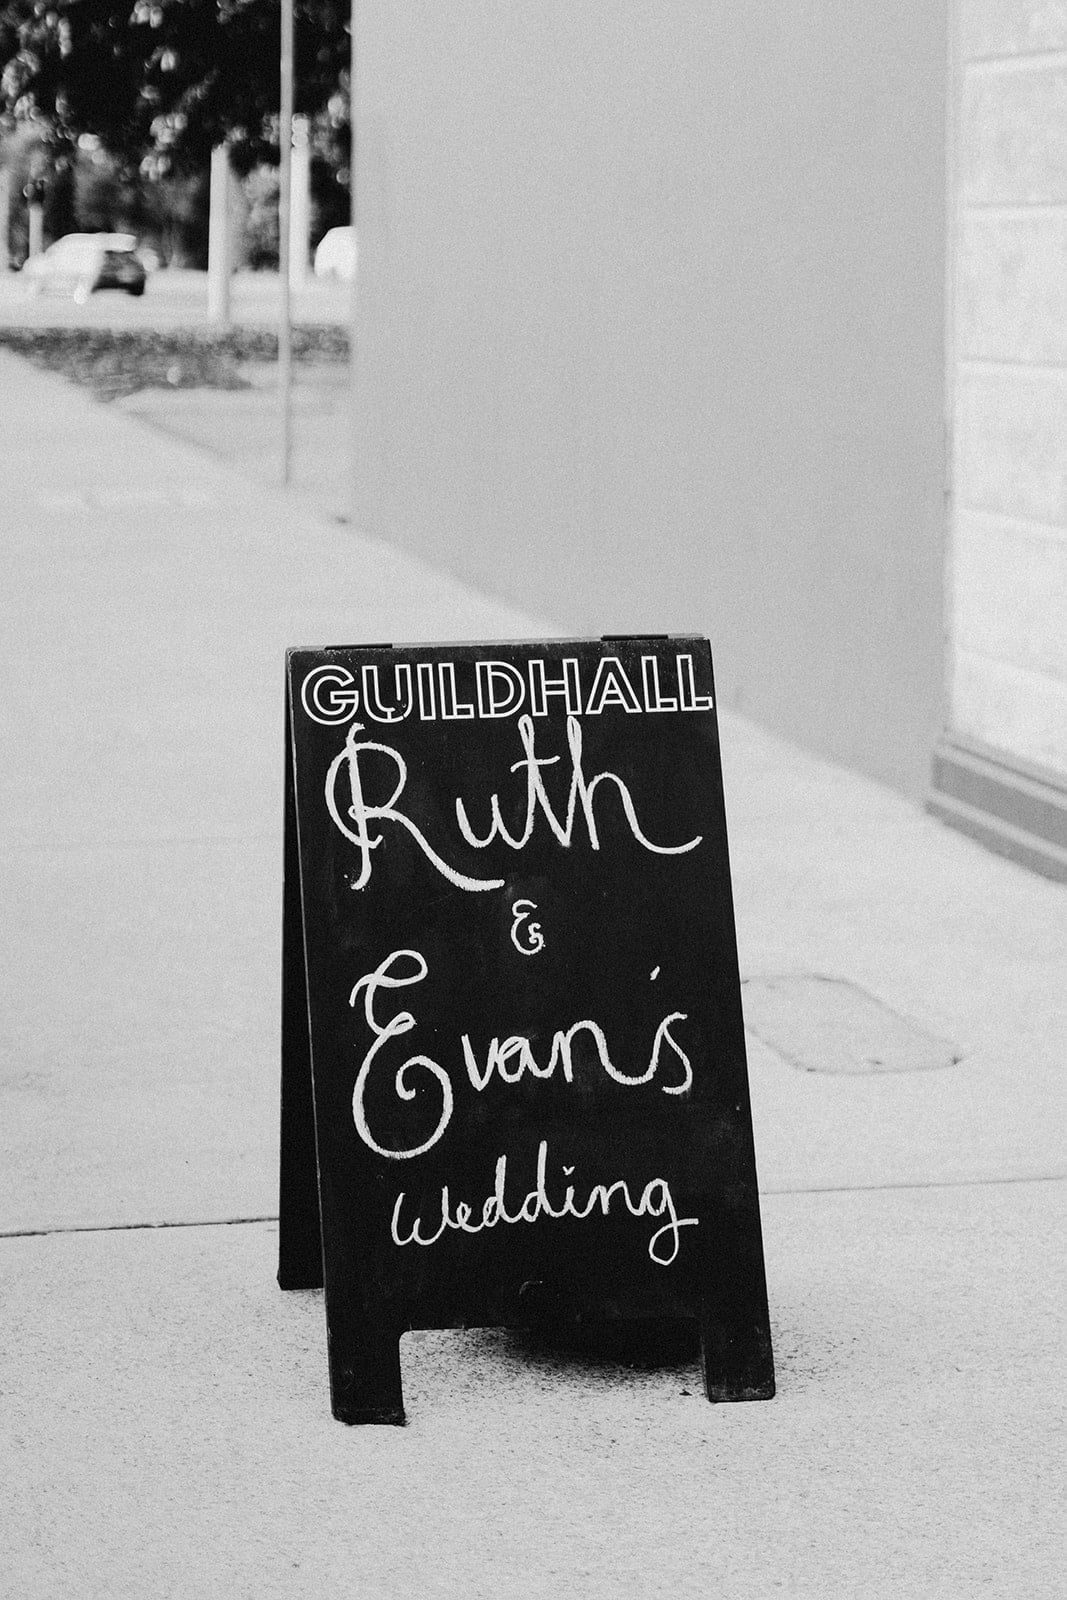 GUILDHALL
Ruth
&
Evan's
Wedding